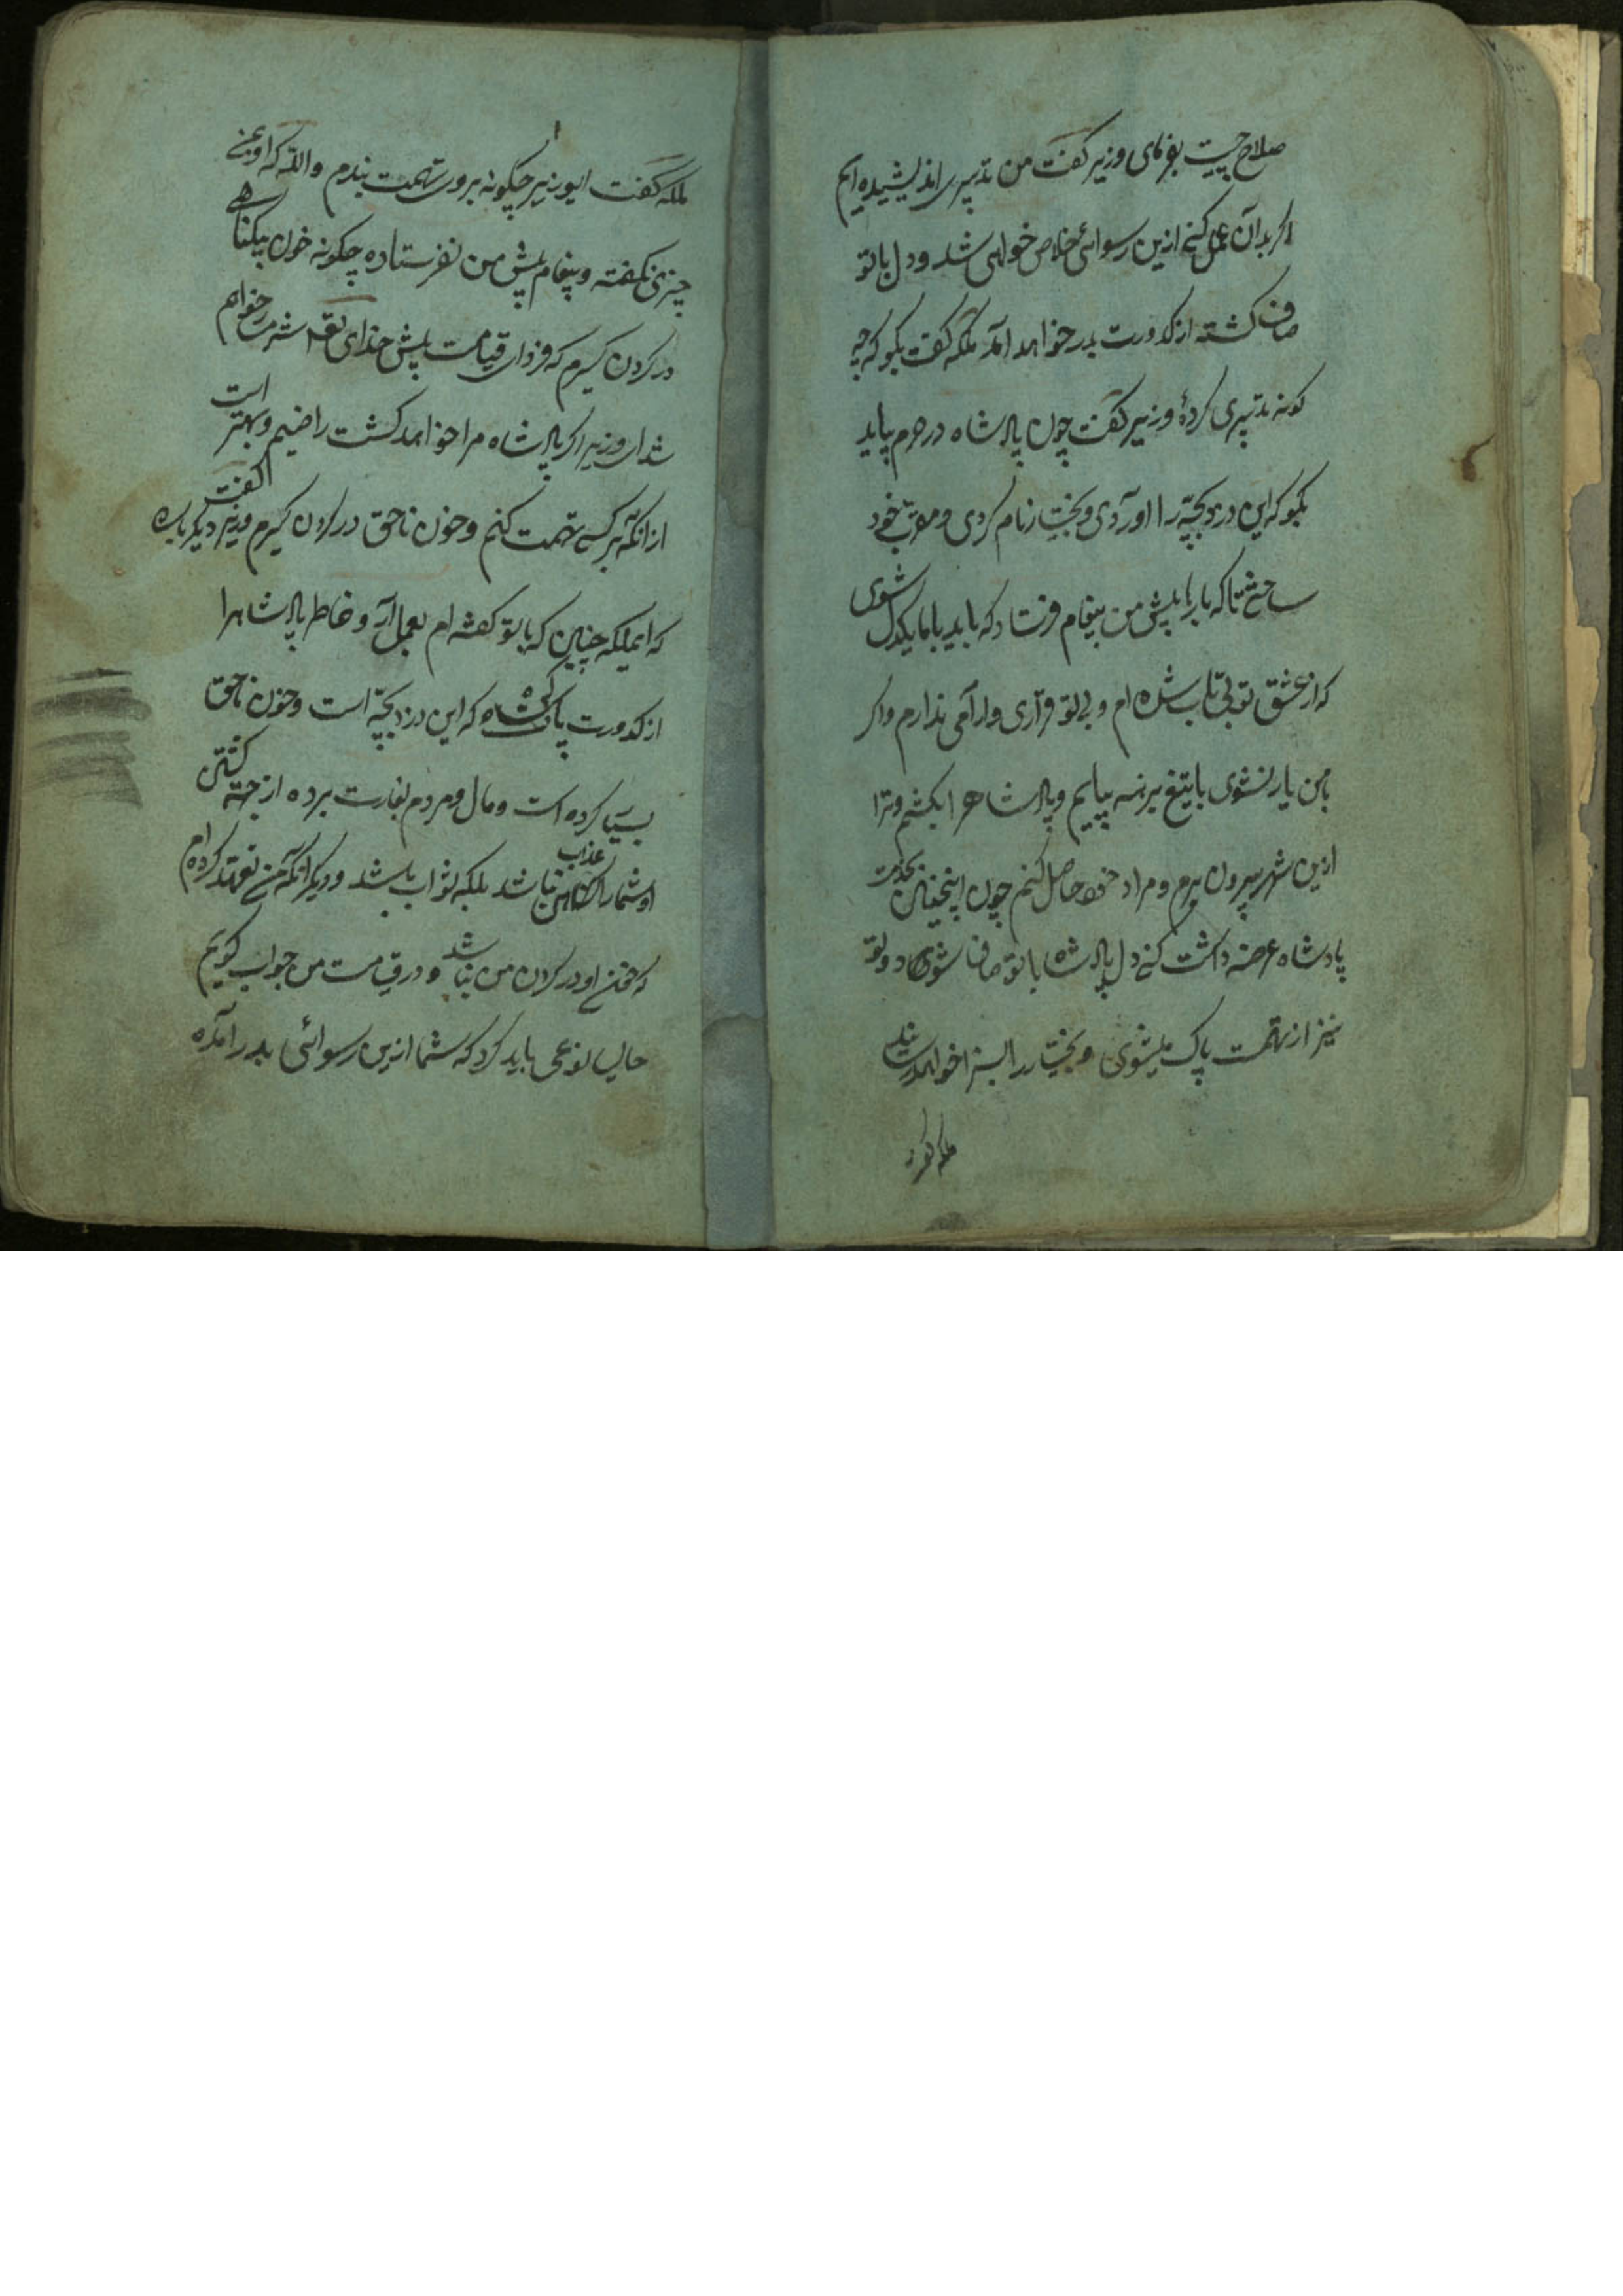 صلاح چیست بفرمای وزیر کفت من تدبیری اندیشیده ایم
اکر بدان عمل کنے ازین رسوائی خلاص خواهی شد و دل با تو
صاف کشته از کدورت بدر خواهد آمد ملکه کفت بکو که چه
کونه تدبیری کردهٔ وزیر کفت چون پادشاه در حرم بیاید
بکو که این دزدبچّه را اوردی و بختیار نام کردی و مقرب خود
ساختی تا که بارها پیش من پیغام فرستاد که باید با ما یکدل شوی
که از عشق تو بی تاب شده ام و بی تو قراری و ارامی ندارم و اکر
بمن یار نشوی با تیغ برهنه بیایم و پادشاه را بکشم و ترا
ازین شهر بیرون برم و مراد خود حاصل کنم چون اینچنین بخدمت
پادشاه عرضه داشت کنے دل پادشاه با تو صاف شود و تو
نیز از تهمت پاک میشوی و بختیار را بسزا خواهد رسانید
ملکه کفت ایوزیر چکونه بروی تهمت بندم والله که او بمنے
چیزی نکفته و پیغام پیش من نفرستاده چکونه خون بیکناهے
در کردن کیرم که فردای قیامت پیش خدای تعه شرمسار خواهم
شد ای وزیر اکر پادشاه مرا خواهد کشت راضیم و بهتر است
از انکه بر کسے تهمت کنم و خون ناحق در کردن کیرم وزیر دیکر باره کفت
که ایملکه چنین که با تو کفته ام بعمل آر و خاطر پادشاه را
از کدورت پاک کن که این دزدبچّه است و خون ناحق
بسیار کرده است و مال مردم بغارت برده از جهته کشتن
او شمارا عذاب نباشد بلکه ثواب باشد و دیکر انکه من تعهد کرده ام
که خون او در کردن من باشد و در قیامت من جواب کویم
حالی نوعی باید کرد که شما ازین رسوائی بدر آمده